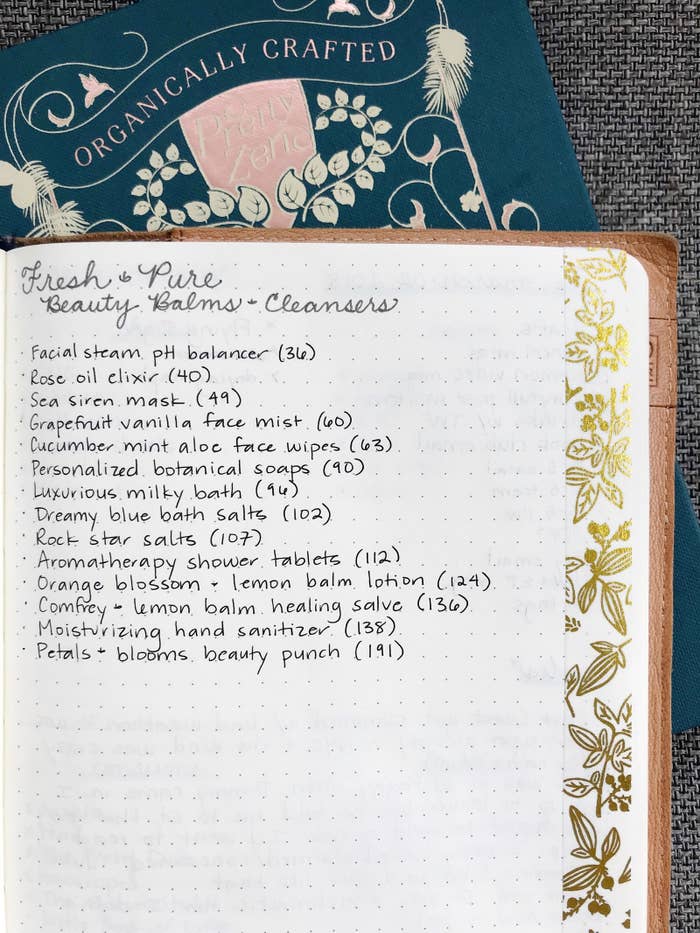 ORGANICALLY CRAFTED
Pretty
Zen
Fresh + Pure
Beauty Balms + Cleansers
· Facial steam pH balancer (36)
· Rose oil elixir (40)
· Sea siren mask (49)
· Grapefruit vanilla face mist (60)
· Cucumber mint aloe face wipes (63)
· Personalized botanical soaps (90)
· Luxurious milky bath (96)
· Dreamy blue bath salts (102)
· Rock star salts (107)
· Aromatherapy shower tablets (112)
· Orange blossom + lemon balm lotion (124)
· Comfrey + lemon balm healing salve (136)
· Moisturizing hand sanitizer (138)
· Petals + blooms beauty punch (191)